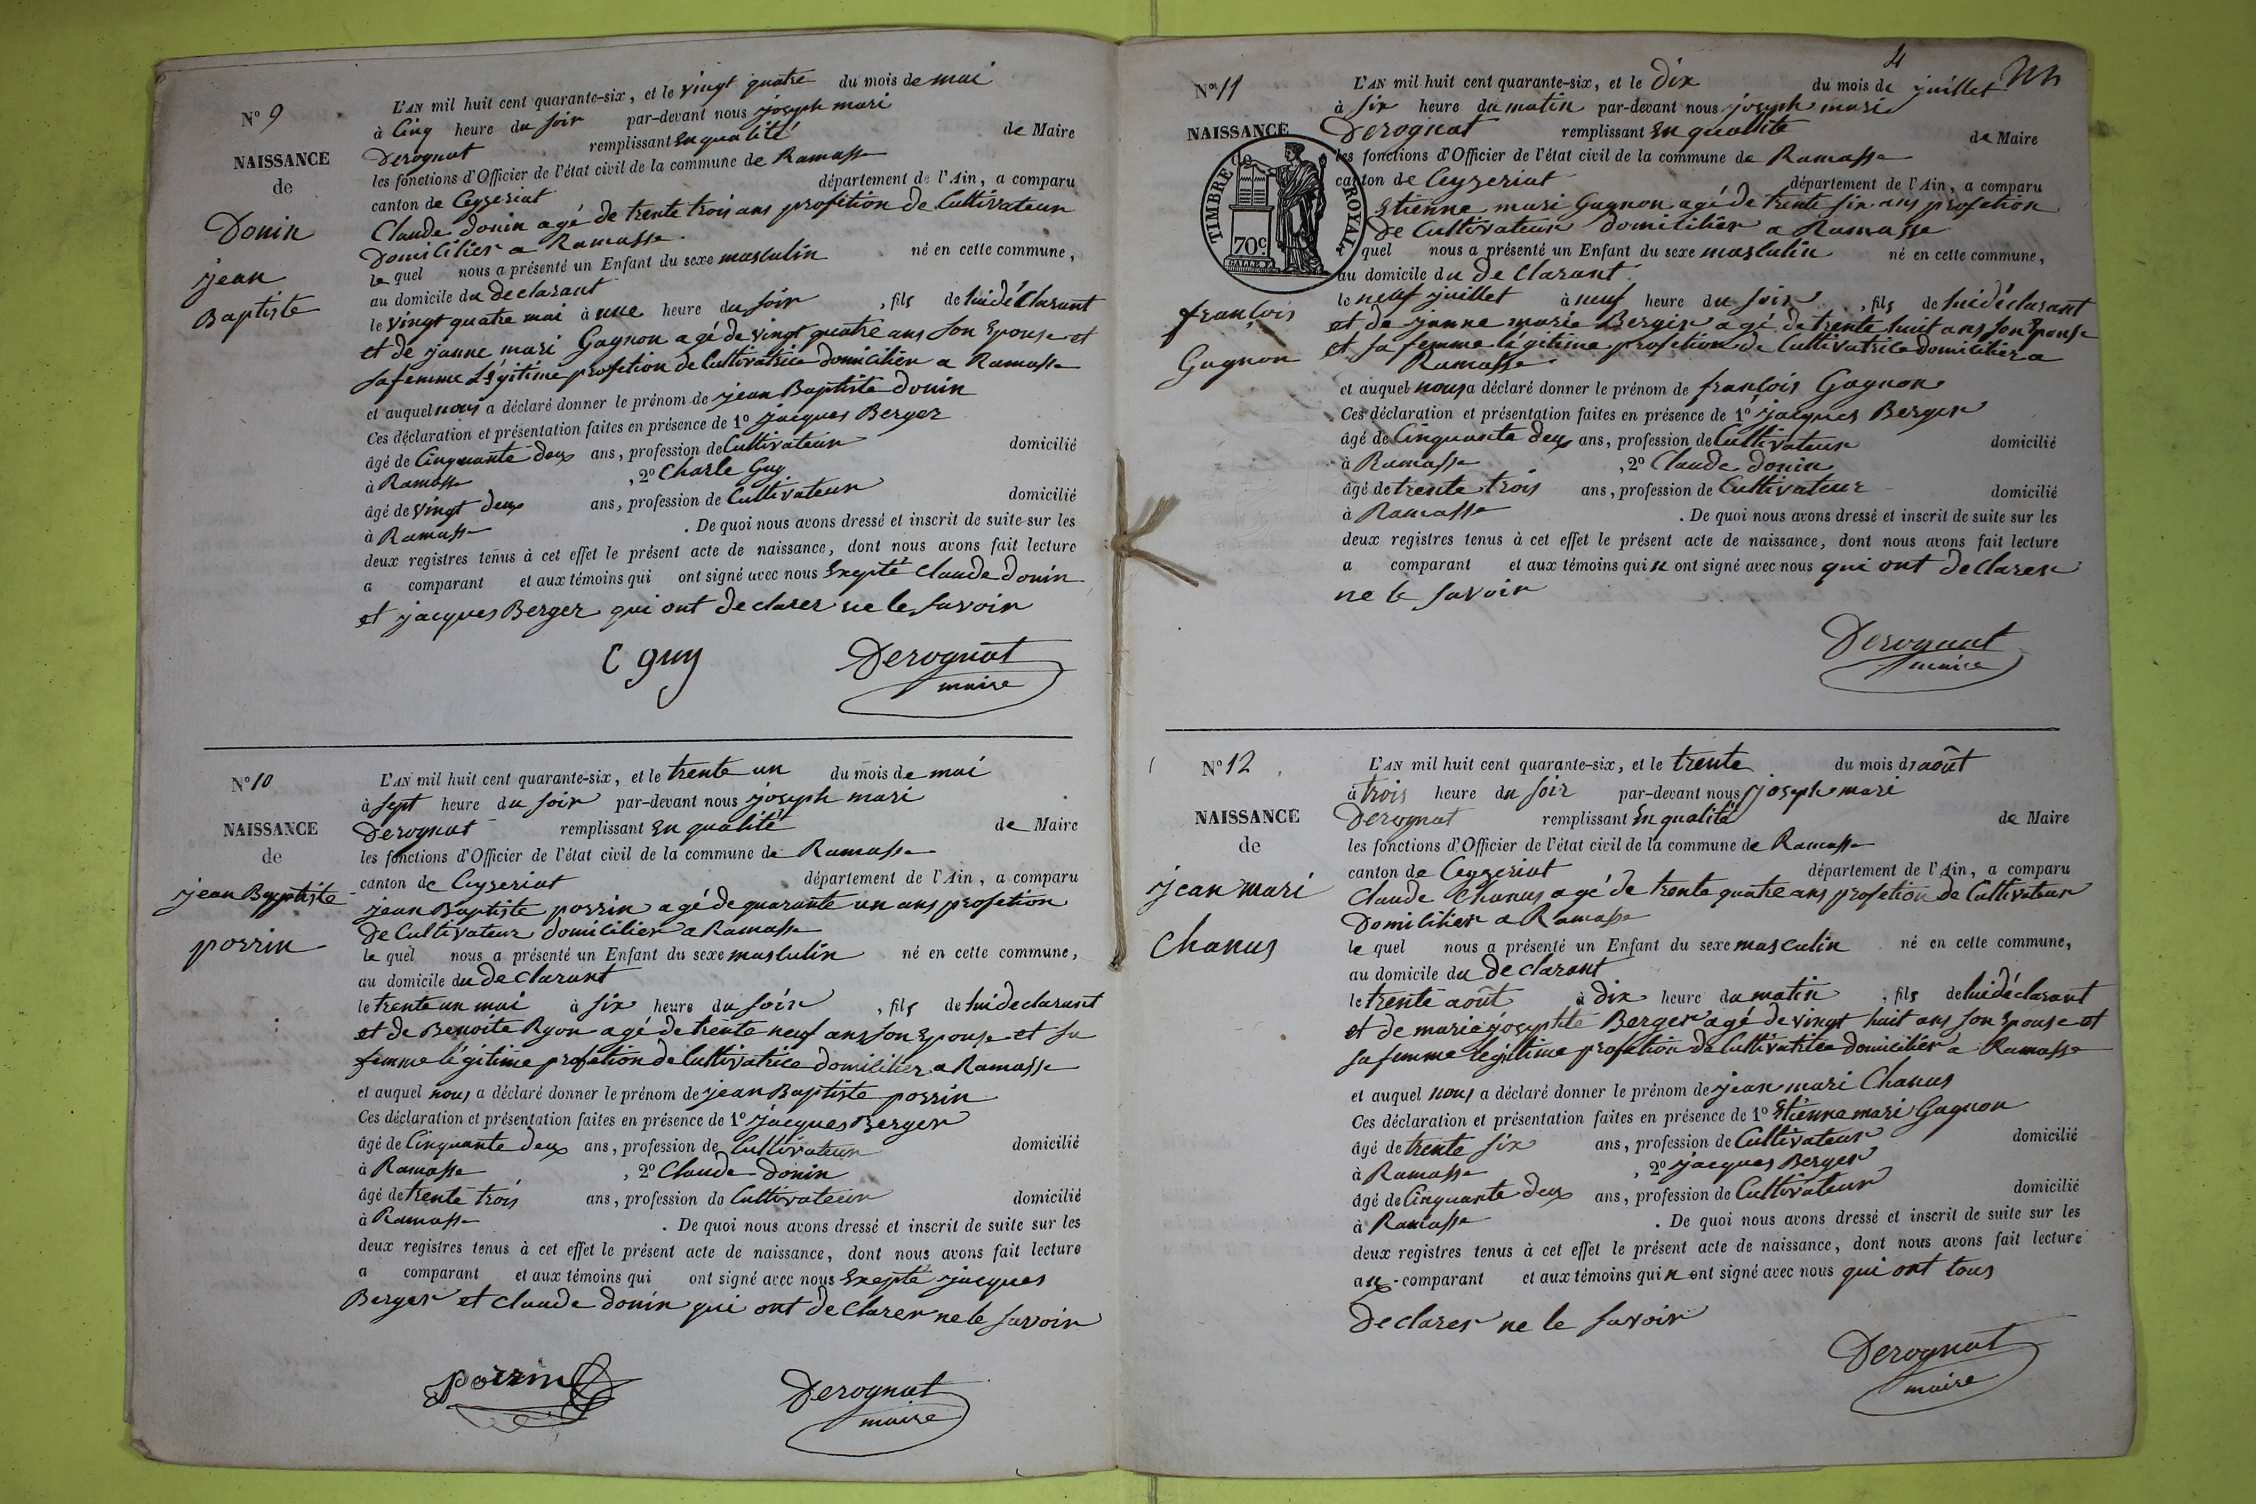 N° 9
NAISSANCE
de
Donin
jean
Baptiste
L'AN mil huit cent quarante-six, et le vingt quatre du mois de mai
à Cinq heure du soir par-devant nous joseph mari
Derognat remplissant En qualité de Maire
les fonctions d'Officier de l'état civil de la commune de Ramasse
canton de Ceyzeriat département de l'Ain, a comparu
Claude donin agé de trente trois ans profetion de Cultivateur
Domicilier a Ramasse
le quel nous a présenté un Enfant du sexe masculin né en cette commune,
au domicile du declarant
le vingt quatre mai à une heure du soir, fils de lui déclarant
et de janne mari Gagnon agé de vingt quatre ans son Epouse et
sa femme Légitime profetion de Cultivatrice domicilier a Ramasse
et auquel nous a déclaré donner le prénom de jean Baptiste donin
Ces déclaration et présentation faites en présence de 1° jacques Berger
âgé de Cinquante deux ans, profession de Cultivateur domicilié
à Ramasse, 2° Charle Guy
âgé de vingt deux ans, profession de Cultivateur domicilié
à Ramasse. De quoi nous avons dressé et inscrit de suite sur les
deux registres tenus à cet effet le présent acte de naissance, dont nous avons fait lecture
a comparant et aux témoins qui ont signé avec nous Exepté Claude donin
et jacques Berger qui ont declarer ne le savoir
C guy Derognat
maire
N° 10
NAISSANCE
de
jean Bapptiste
porrin
L'AN mil huit cent quarante-six, et le trente un du mois de mai
à sept heure du soir par-devant nous joseph mari
Derognat remplissant En qualité de Maire
les fonctions d'Officier de l'état civil de la commune de Ramasse
canton de Ceyzeriat département de l'Ain, a comparu
jean Baptiste porrin agé de quarante un ans profetion
De Cultivateur domicilier a Ramasse
le quel nous a présenté un Enfant du sexe masculin né en cette commune,
au domicile du declarant
le trente un mai à six heure du soir, fils de lui declarant
et de Benoite Ryon agé de trente neuf ans son Epouse et sa
femme légitime profetion de Cultivatrice domicilier a Ramasse
et auquel nous a déclaré donner le prénom de jean Baptiste porrin
Ces déclaration et présentation faites en présence de 1° jacques Berger
âgé de Cinquante deux ans, profession de Cultivateur domicilié
à Ramasse, 2° Claude Donin
âgé de trente trois ans, profession de Cultivateur domicilié
à Ramasse. De quoi nous avons dressé et inscrit de suite sur les
deux registres tenus à cet effet le présent acte de naissance, dont nous avons fait lecture
a comparant et aux témoins qui ont signé avec nous Exepté jacques
Berger et claude donin qui ont declarer ne le savoir
porrin Derognat
maire
4
N° 11
NAISSANCE
de
TIMBRE ROYAL
70c.
françois
Gagnon
L'AN mil huit cent quarante-six, et le dix du mois de juillet
à six heure du matin par-devant nous joseph mari
Derognat remplissant En qualité de Maire
les fonctions d'Officier de l'état civil de la commune de Ramasse
canton de Ceyzeriat département de l'Ain, a comparu
Etienne mari Gagnon agé de trente six ans profetion
De Cultivateur Domicilier a Ramasse
quel nous a présenté un Enfant du sexe masculin né en cette commune,
au domicile du de Clarant
le neuf juillet à neuf heure du soir, fils de lui déclarant
et de janne marie Berger agé de trente huit ans son Epouse
et sa femme légitime profetion de Cultivatrice domicilier a
Ramasse
et auquel nous a déclaré donner le prénom de françois Gagnon
Ces déclaration et présentation faites en présence de 1° jacques Berger
âgé de Cinquante deux ans, profession de Cultivateur domicilié
à Ramasse, 2° Claude donin
âgé de trente trois ans, profession de Cultivateur domicilié
à Ramasse. De quoi nous avons dressé et inscrit de suite sur les
deux registres tenus à cet effet le présent acte de naissance, dont nous avons fait lecture
a comparant et aux témoins qui n ont signé avec nous qui ont declarer
ne le savoir
Derognat
maire
N° 12
NAISSANCE
de
jean mari
Chanus
L'AN mil huit cent quarante-six, et le trente du mois d'août
à trois heure du soir par-devant nous joseph mari
Derognat remplissant En qualité de Maire
les fonctions d'Officier de l'état civil de la commune de Ramasse
canton de Ceyzeriat département de l'Ain, a comparu
Claude Chanus agé de trente quatre ans profetion de Cultivateur
Domicilier a Ramasse
le quel nous a présenté un Enfant du sexe masculin né en cette commune,
au domicile du declarant
le trente août à dix heure du matin, fils de lui déclarant
et de marie Berger agé de vingt huit ans son Epouse et
sa femme légitime profetion de Cultivatrice domicilier a Ramasse
et auquel nous a déclaré donner le prénom de jean mari Chanus
Ces déclaration et présentation faites en présence de 1° Etienne mari Gagnon
âgé de trente six ans, profession de Cultivateur domicilié
à Ramasse, 2° jacques Berger
âgé de Cinquante deux ans, profession de Cultivateur domicilié
à Ramasse. De quoi nous avons dressé et inscrit de suite sur les
deux registres tenus à cet effet le présent acte de naissance, dont nous avons fait lecture
aux comparant et aux témoins qui n ont signé avec nous qui ont tous
declarer ne le savoir
Derognat
maire